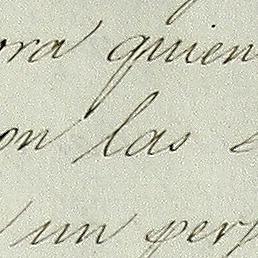 ora quien
on las
un per